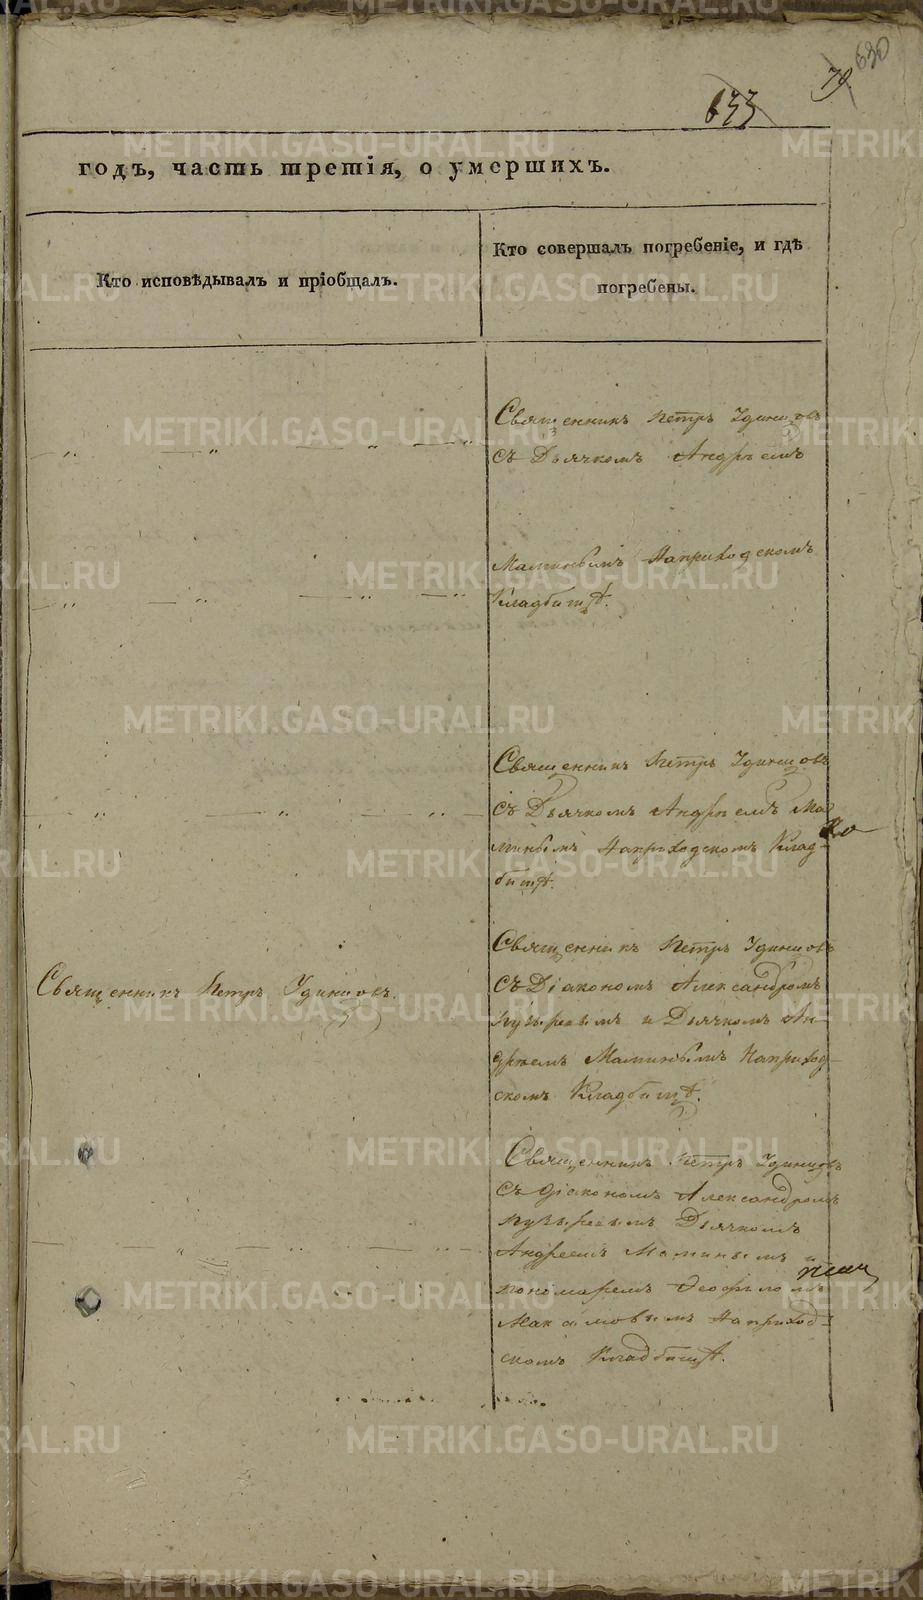 630
79.
633
годъ, часть третія, о умершихъ.
Кто исповѣдывалъ и пріобщалъ.
Кто совершалъ погребеніе, и гдѣ
погребены.
Священникъ Петръ Удинцовъ
съ Дьячкомъ Андреемъ
Маминымъ Наприходскомъ
Кладбищѣ.
Священникъ Петръ Удинцовъ
съ Дьячкомъ Андреемъ Ма-
минымъ Наприходскомъ Клад-
бищѣ.
Священникъ Петръ Удинцовъ.
Священникъ Петръ Удинцовъ
съ Діакономъ Александромъ
и Дьячкомъ Ан-
дреемъ Маминымъ Наприход-
скомъ Кладбищѣ.
Священникъ Петръ Удинцовъ
съ Діакономъ Александромъ
Дьячкомъ
Андреемъ Маминымъ и
пономаремъ Феофиломъ
Наприход-
скомъ Кладбищѣ.
METRIKI.GASO-URAL.RU